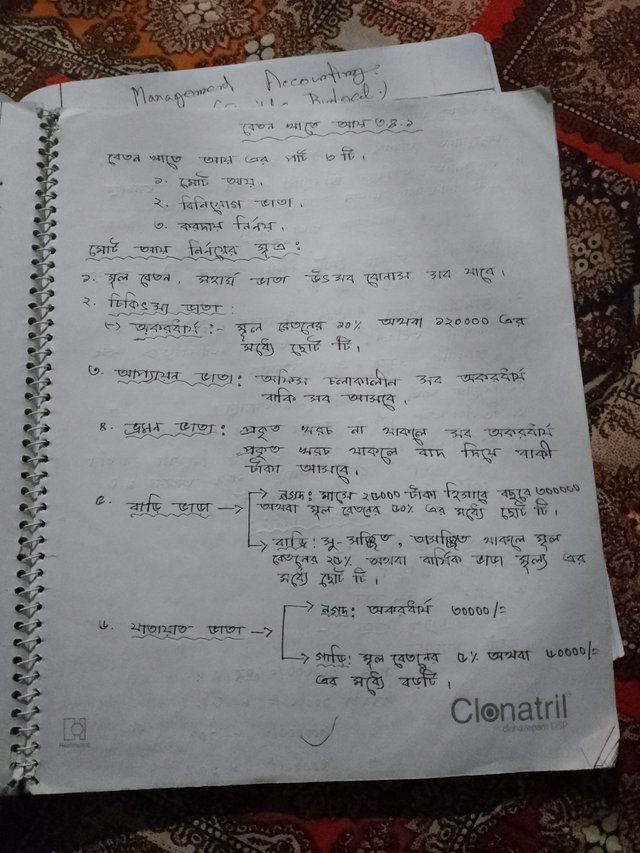 Management Accounting:
বেতন খাতে আয় ৩.৪.১
বেতন খাতে আয় এর পার্ট ৩ টি।
১. মোট আয়।
২. বিনিয়োগ ভাতা।
৩. করদায় নির্নয়।
মোট আয় নির্নয়ের সূত্র:
১. মূল বেতন, মহার্ঘ ভাতা উৎসব বোনাস সব যাবে।
২. চিকিৎসা ভাতা:
(-) অকরধার্য:- মূল বেতনের ১০% অথবা ১২০০০০ এর
মধ্যে ছোট টি।
৩. আপ্যায়ন ভাতা: অফিস চলাকালীন সব অকরধার্য
বাকি সব আসবে।
৪. ভ্রমন ভাতা: প্রকৃত খরচ না থাকলে সব অকরধার্য
প্রকৃত খরচ থাকলে বাদ দিয়ে বাকী
টাকা আসবে।
৫. বাড়ি ভাড়া → নগদ: মাসে ২৫০০০ টাকা হিসাবে বছরে ৩০০০০০
অথবা মূল বেতনের ৫০% এর মধ্যে ছোট টি।
→ বাড়ি: সু-সজ্জিত, অসজ্জিত থাকলে মূল
বেতনের ২৫% অথবা বার্ষিক ভাড়া মূল্য এর
মধ্যে ছোট টি।
৬. যাতায়াত ভাতা → নগদ: অকরধার্য ৩০০০০/=
→ গাড়ি: মূল বেতনের ৫% অথবা ৬০০০০/=
এর মধ্যে বড়টি।
Clonatril
clonazepam USP